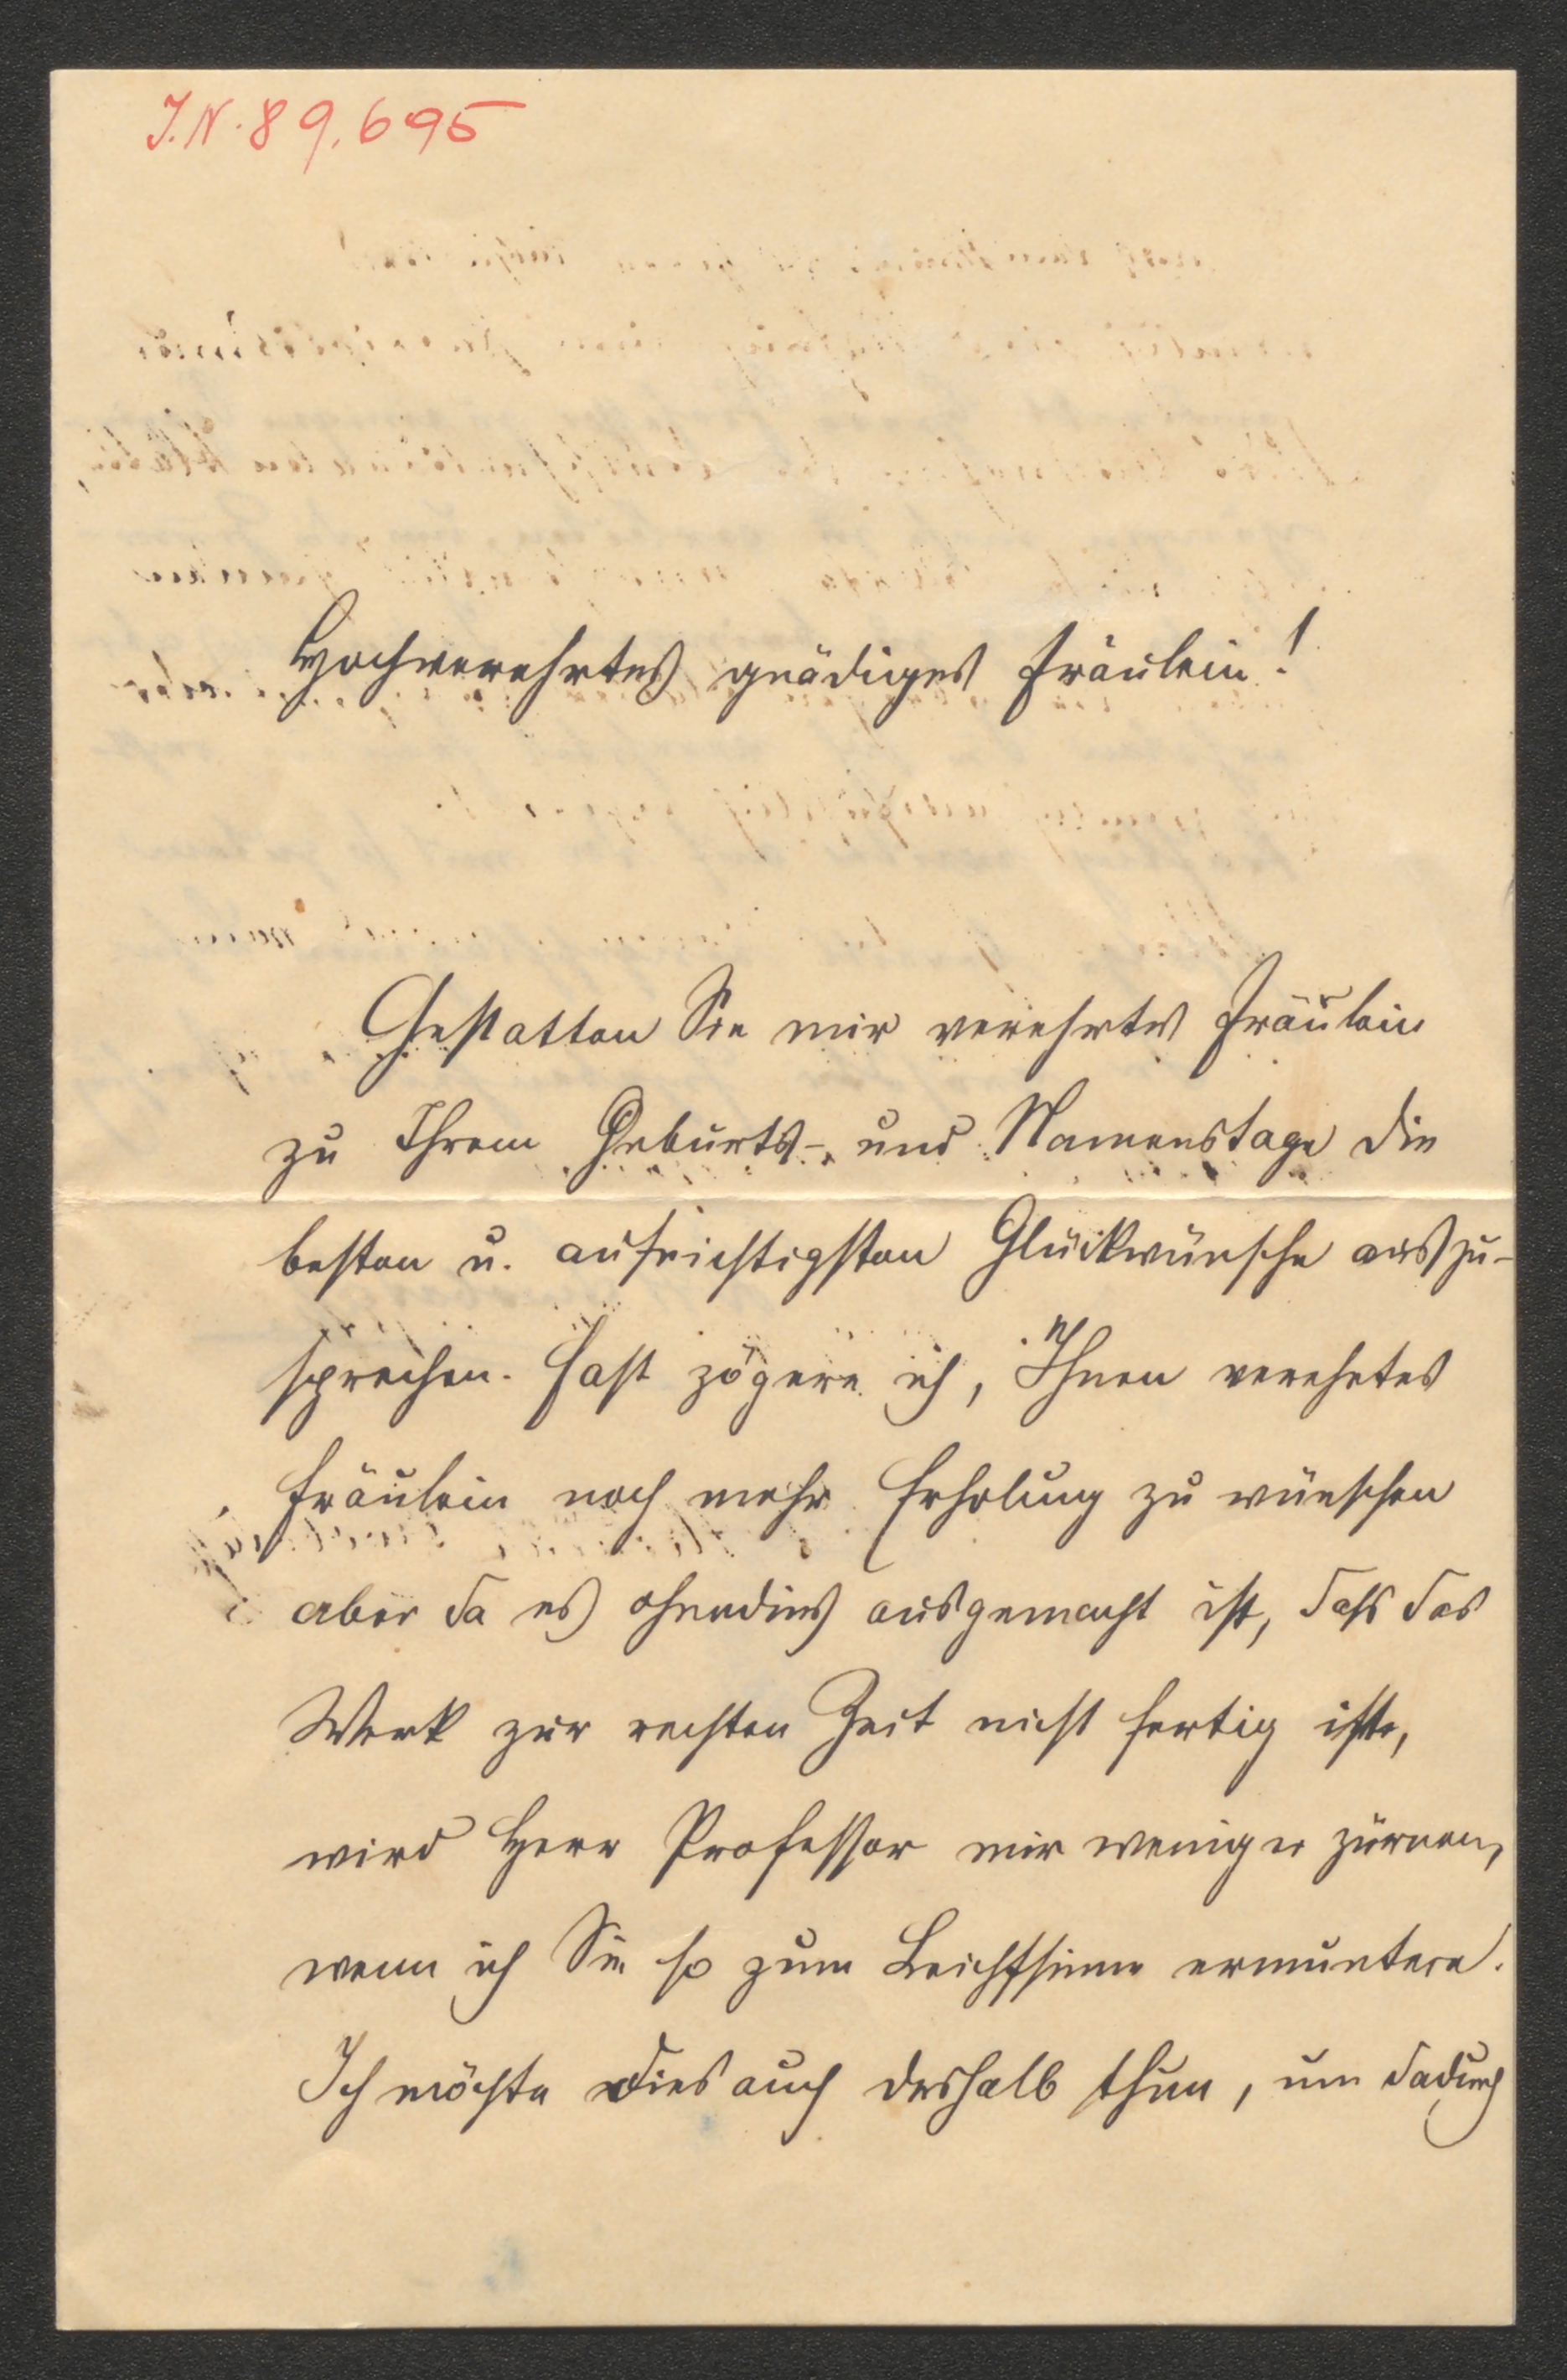 J.N. 89.695
Hochverehrtes gnädiges Fräulein!
Gestatten Sie mir verehrtes Fräulein
zu Ihrem Geburts- und Namenstage die
besten u. aufrichtigsten Glückwünsche auszu-
sprechen. Fast zögere ich, Ihnen verehrtes
Fräulein noch mehr Erholung zu wünschen
aber da es ohnedies ausgemacht ist, daß das
Werk zur rechten Zeit nicht fertig ist,
wird Herr Professor mir weniger zürnen,
wenn ich Sie so zum Leichtsinne ermuntere.
Ich möchte dies auch deshalb thun, um dadurch